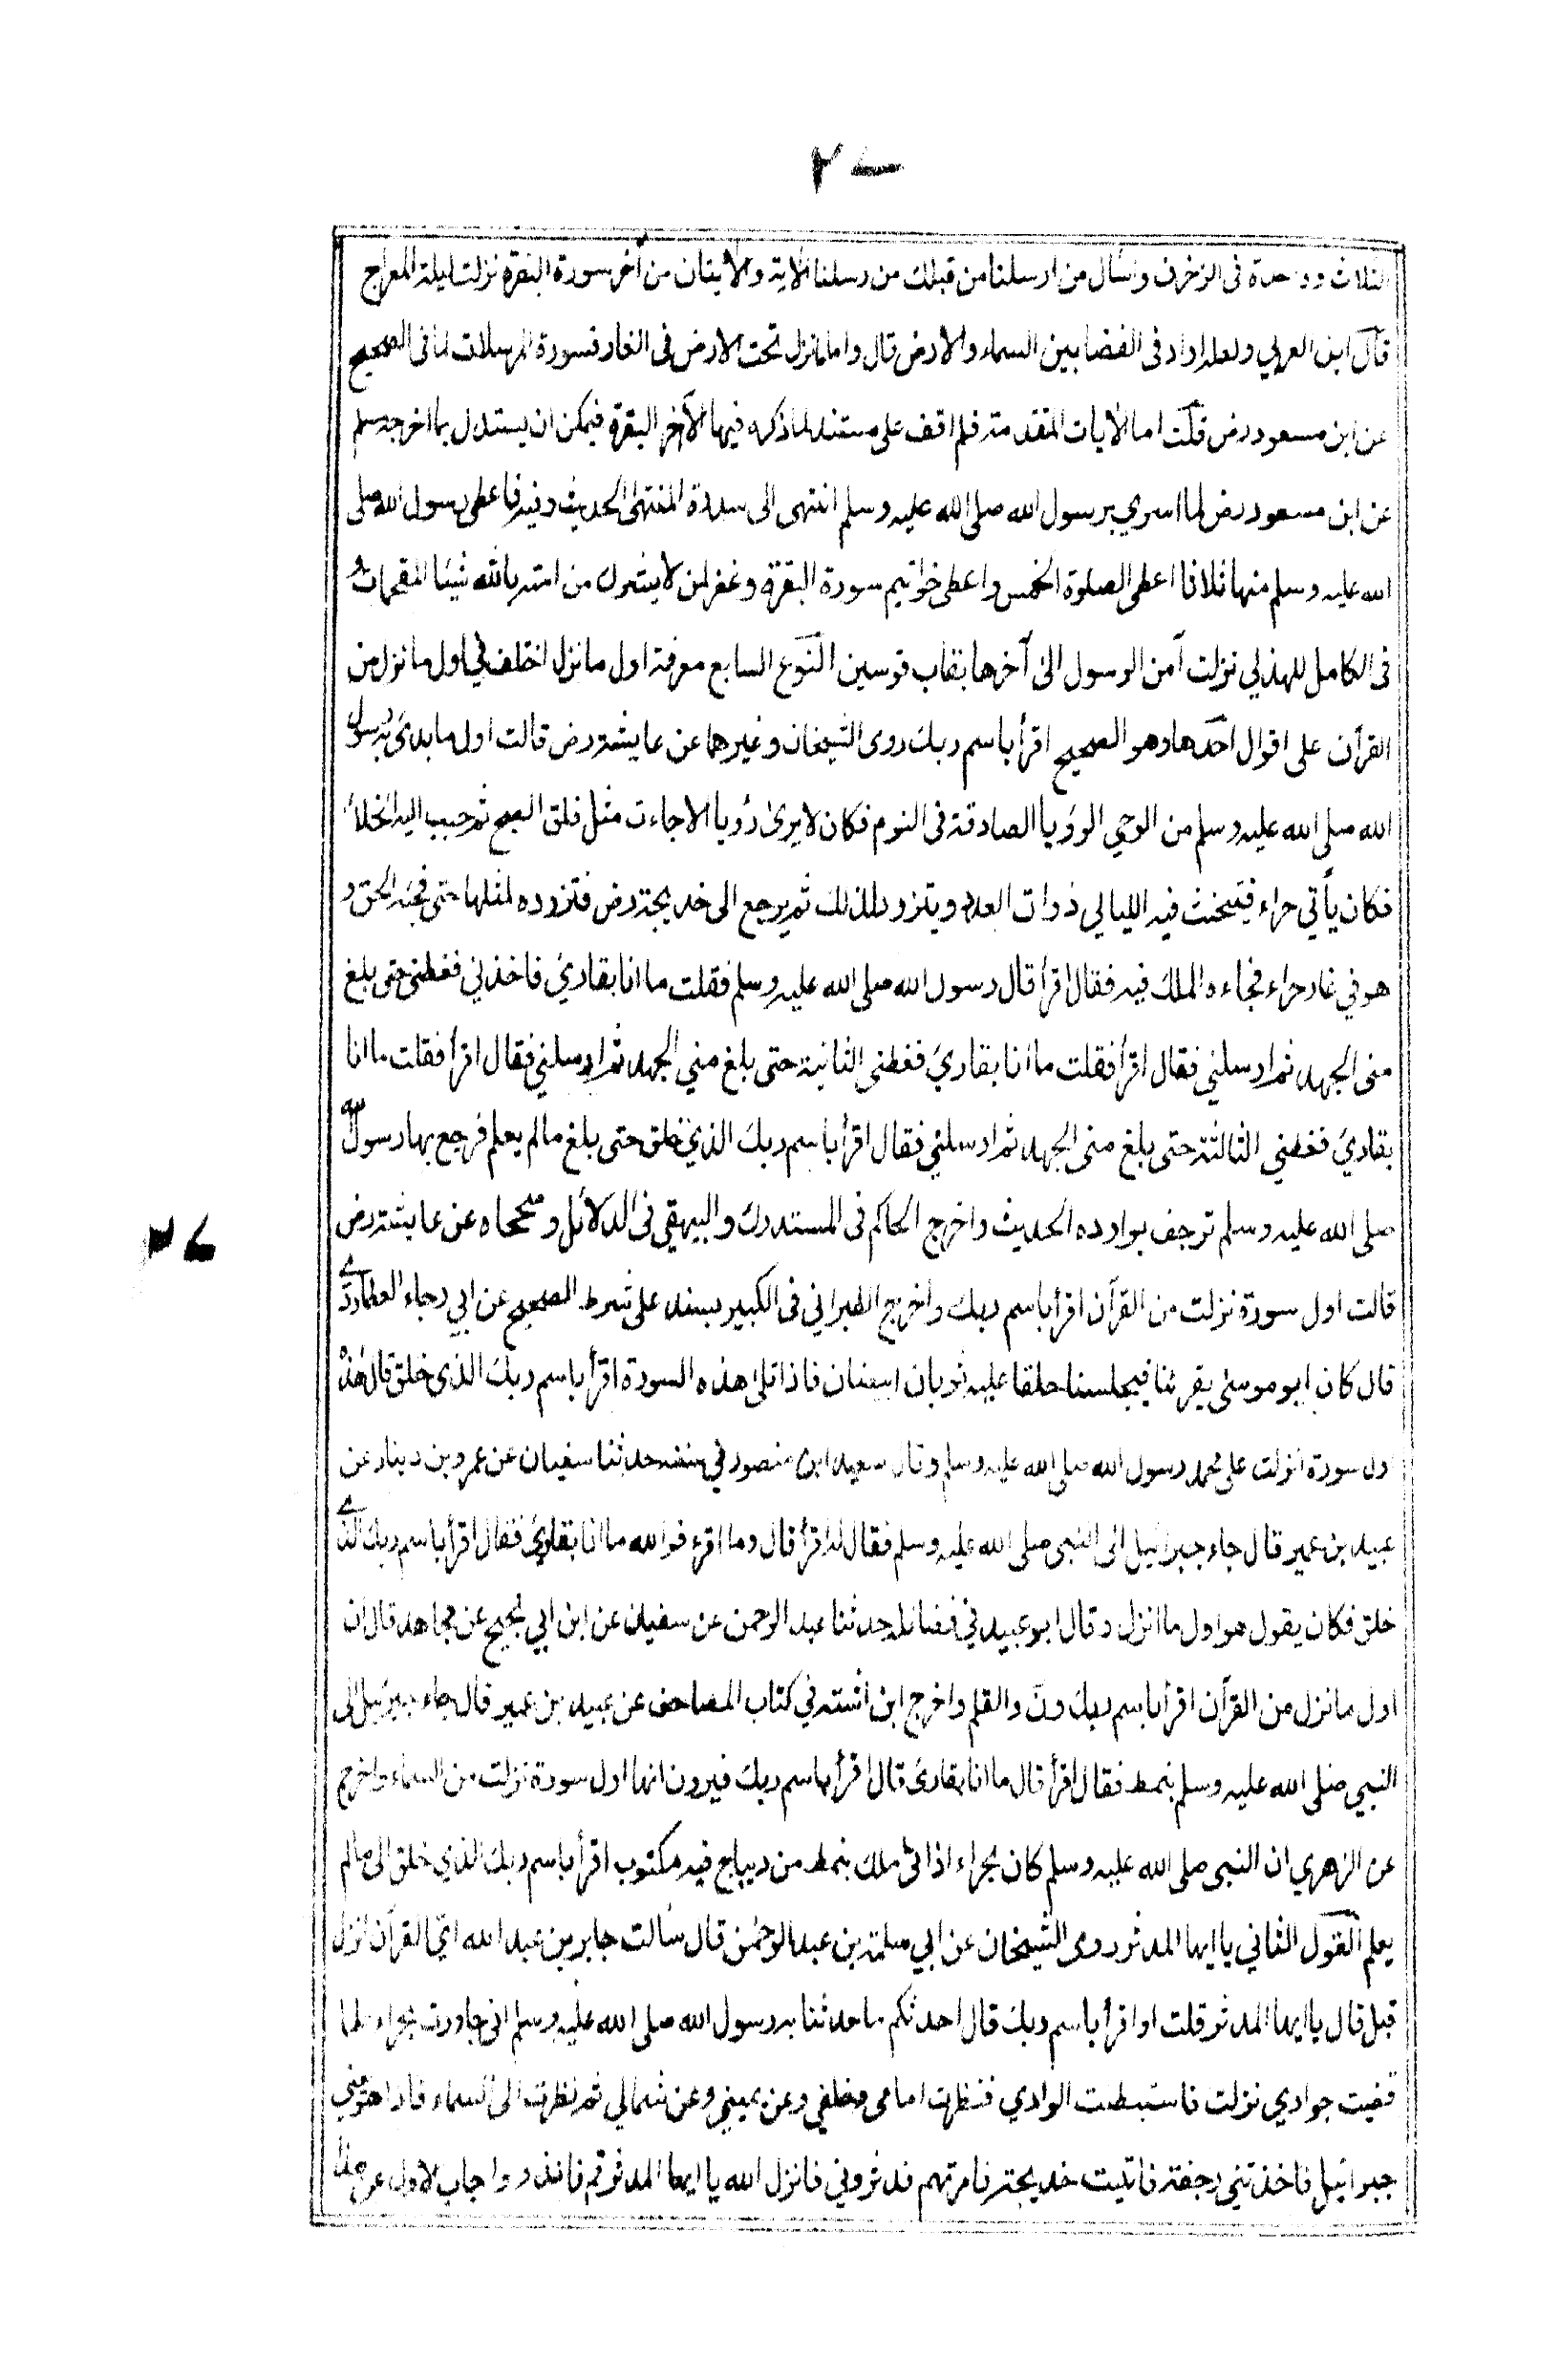 ٢٧
الثلاث وواحدة فى الزخرف واسأل من ارسلنا من قبلك من رسلنا الآية والآيتان من آخر سورة البقرة نزلت ليلة المعراج
قال ابن العربي ولعله اراد فى الفضا بين السماء والارض قال واما ما نزل تحت الارض فى الغار فسورة المرسلات لما فى الصحيح
عن ابن مسعود رض قلت اما الآيات المتقدمة فلم اقف على مستند لما ذكره فيها الا آخر البقرة فيمكن ان يستدل بما اخرجه مسلم
عن ابن مسعود رض لما اسري برسول الله صلى الله عليه وسلم انتهى الى سدرة المنتهى الحديث وفيه فاعطى رسول الله صلى
الله عليه وسلم منها ثلاثا اعطى الصلوة الخمس واعطى خواتيم سورة البقرة وغفر لمن لا يشرك من امته بالله شيئا المقحمات و
فى الكامل للهذلي نزلت آمن الرسول الى آخرها بقاب قوسين النوع السابع معرفة اول ما نزل اختلف في اول ما نزل من
القرآن على اقوال احدها وهو الصحيح اقرأ باسم ربك روى الشيخان وغيرهما عن عايشة رض قالت اول ما بدئ به رسول
الله صلى الله عليه وسلم من الوحي الرؤيا الصادقة فى النوم فكان لا يرى رؤيا الا جاءت مثل فلق الصبح ثم حبب اليه الخلاء
فكان يأتي حراء فيتحنث فيه الليالي ذوات العدد ويتزود لذلك ثم يرجع الى خديجة رض فتزوده لمثلها حتى فجئه الحق و
هو في غار حراء فجاءه الملك فيه فقال اقرأ قال رسول الله صلى الله عليه وسلم فقلت ما انا بقاري فاخذني فغطنى حتى بلغ
منى الجهد ثم ارسلني فقال اقرأ فقلت ما انا بقاري فغطنى الثانية حتى بلغ مني الجهد ثم ارسلني فقال اقرأ فقلت ما انا
بقاري فغطني الثالثة حتى بلغ منى الجهد ثم ارسلني فقال اقرأ باسم ربك الذي خلق حتى بلغ ما لم يعلم فرجع بها رسول الله
صلى الله عليه وسلم ترجف بوادره الحديث واخرج الحاكم فى المستدرك والبيهقي فى الدلائل وصححاه عن عايشة رض
قالت اول سورة نزلت من القرآن اقرأ باسم ربك واخرج الطبراني فى الكبير بسند على شرط الصحيح عن ابي رجاء العطاردي
قال كان ابو موسى يقرئنا فيجلسنا حلقا عليه ثوبان ابيضان فاذا تلى هذه السورة اقرأ باسم ربك الذى خلق قال هذه
اول سورة انزلت على محمد رسول الله صلى الله عليه وسلم وقال سعيد ابن منصور في سننه حدثنا سفيان عن عمرو بن دينار عن
عبيد بن عمير قال جاء جبرائيل الى النبى صلى الله عليه وسلم فقال له اقرأ قال وما اقرء فوالله ما انا بقارئ فقال اقرأ باسم ربك الذي
خلق فكان يقول هو اول ما انزل وقال ابو عبيد في فضائله حدثنا عبد الرحمن عن سفيان عن ابن ابي نجيح عن مجاهد قال ان
اول ما نزل من القرآن اقرأ باسم ربك ون والقلم واخرج ابن اشته في كتاب المصاحف عن عبيد بن عمير قال جاء جبرئيل الى
النبي صلى الله عليه وسلم بنمط فقال اقرأ قال ما انا بقارئ قال اقرأ باسم ربك فيرون انها اول سورة نزلت من السماء واخرج
عن الزهري ان النبى صلى الله عليه وسلم كان بحراء اذ اتى ملك بنمط من ديباج فيه مكتوب اقرأ باسم ربك الذي خلق الى ما لم
يعلم القول الثاني يا ايها المدثر روى الشيخان عن ابي سلمة بن عبد الرحمن قال سألت جابر بن عبد الله اي القرآن انزل
قبل قال يا ايها المدثر قلت او اقرأ باسم ربك قال احدثكم ما حدثنا به رسول الله صلى الله عليه وسلم انى جاورت بحراء فلما
قضيت جواري نزلت فاستبطنت الوادي فنظرت امامى وخلفي وعن يميني وعن شمالي ثم نظرت الى السماء فاذا هو يعني
جبرائيل فاخذتني رجفة فاتيت خديجة فامرتهم فدثروني فانزل الله يا ايها المدثر قم فانذر واجاب الاول عن هذا
٢٧